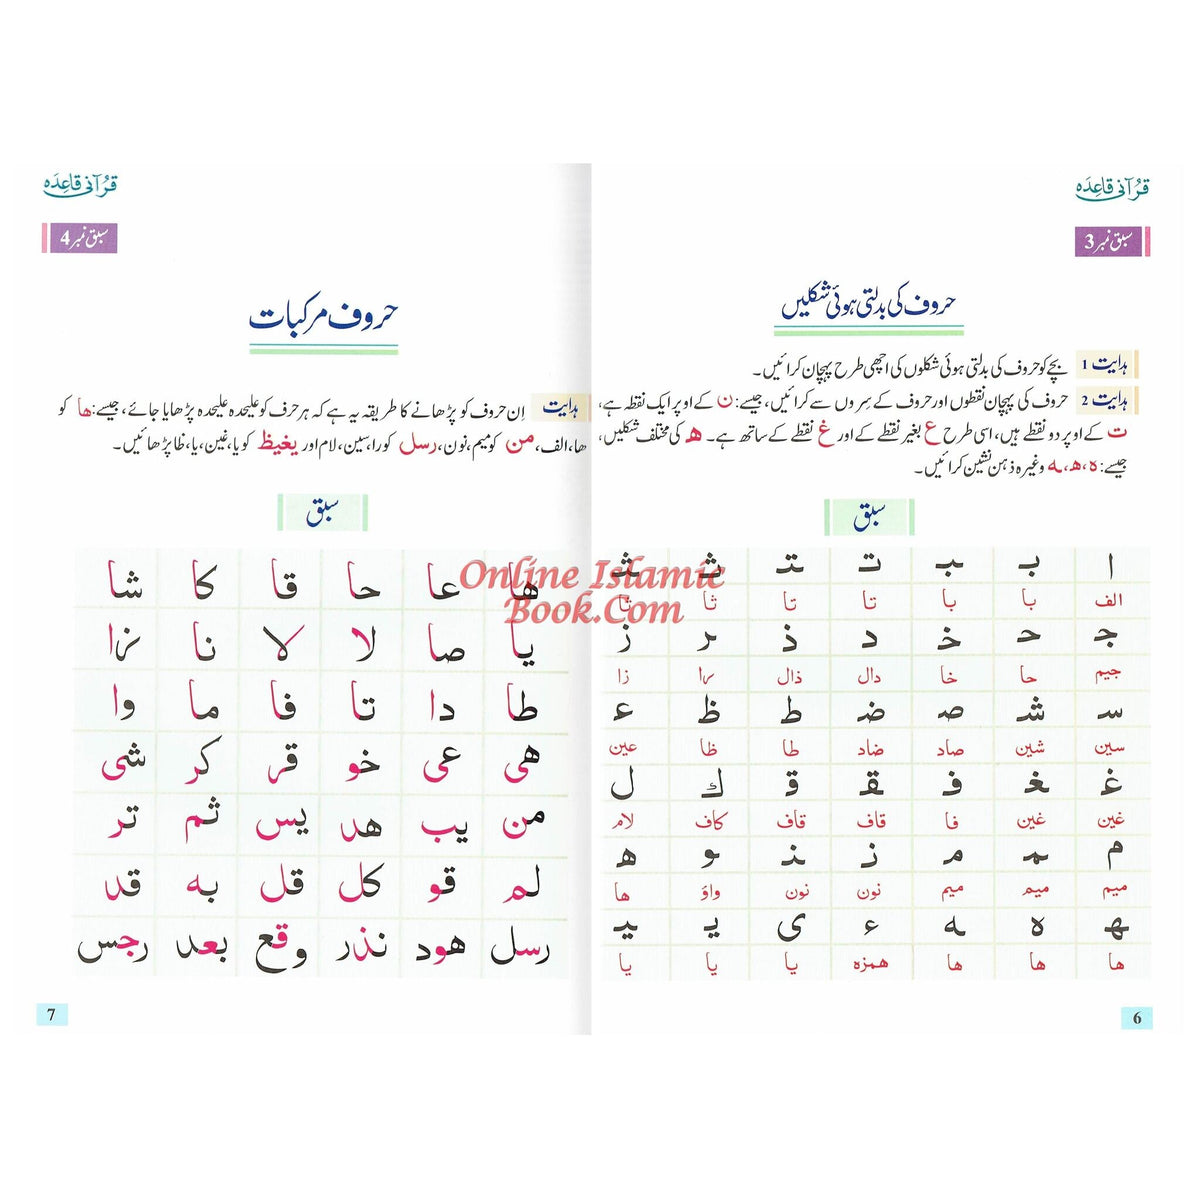 قرآنی قاعدہ
سبق نمبر 3
حروف کی بدلتی ہوئی شکلیں
ہدایت 1 بچے کو حروف کی بدلتی ہوئی شکلوں کی اچھی طرح پہچان کرائیں۔
ہدایت 2 حروف کی پہچان نقطوں اور حروف کے سروں سے کرائیں، جیسے: ن کے اوپر ایک نقطہ ہے،
ت کے اوپر دو نقطے ہیں، اسی طرح ع بغیر نقطے کے اور غ نقطے کے ساتھ ہے۔ ھ کی مختلف شکلیں،
جیسے: ہ، ھ، ـہ وغیرہ ذہن نشین کرائیں۔
سبق
ا بـ ـبـ تـ ـتـ ثـ ـثـ
الف با با تا تا ثا ثا
جـ حـ خـ د ذ ر ز
جیم حا خا دال ذال را زا
سـ شـ صـ ضـ ط ظ عـ
سین شین صاد ضاد طا ظا عین
غـ ـغـ فـ ـقـ قـ ك ل
غین غین فا قاف قاف کاف لام
م ـمـ مـ نـ ـنـ و ھ
میم میم میم نون نون واؤ ھا
ـهـ ه ـه ء ی یـ ـیـ
ھا ھا ھا ھمزہ یا یا یا
6
قرآنی قاعدہ
سبق نمبر 4
حروف مرکبات
ہدایت اِن حروف کو پڑھانے کا طریقہ یہ ہے کہ ہر حرف کو علیحدہ علیحدہ پڑھایا جائے، جیسے: ھا کو
ھا، الف، من کو میم، نون، رسل کو را، سین، لام اور یغیظ کو یا، غین، یا، ظا پڑھائیں۔
سبق
ها عا حا قا كا شا
یا صا لا لا نا نزا
طا دا تا فا ما وا
هى عى خو قر كر شى
من يب هد يس ثم تر
لم قو كل قل به قد
رسل هود نذر وقع بعد رجس
7
Online Islamic
Book.Com